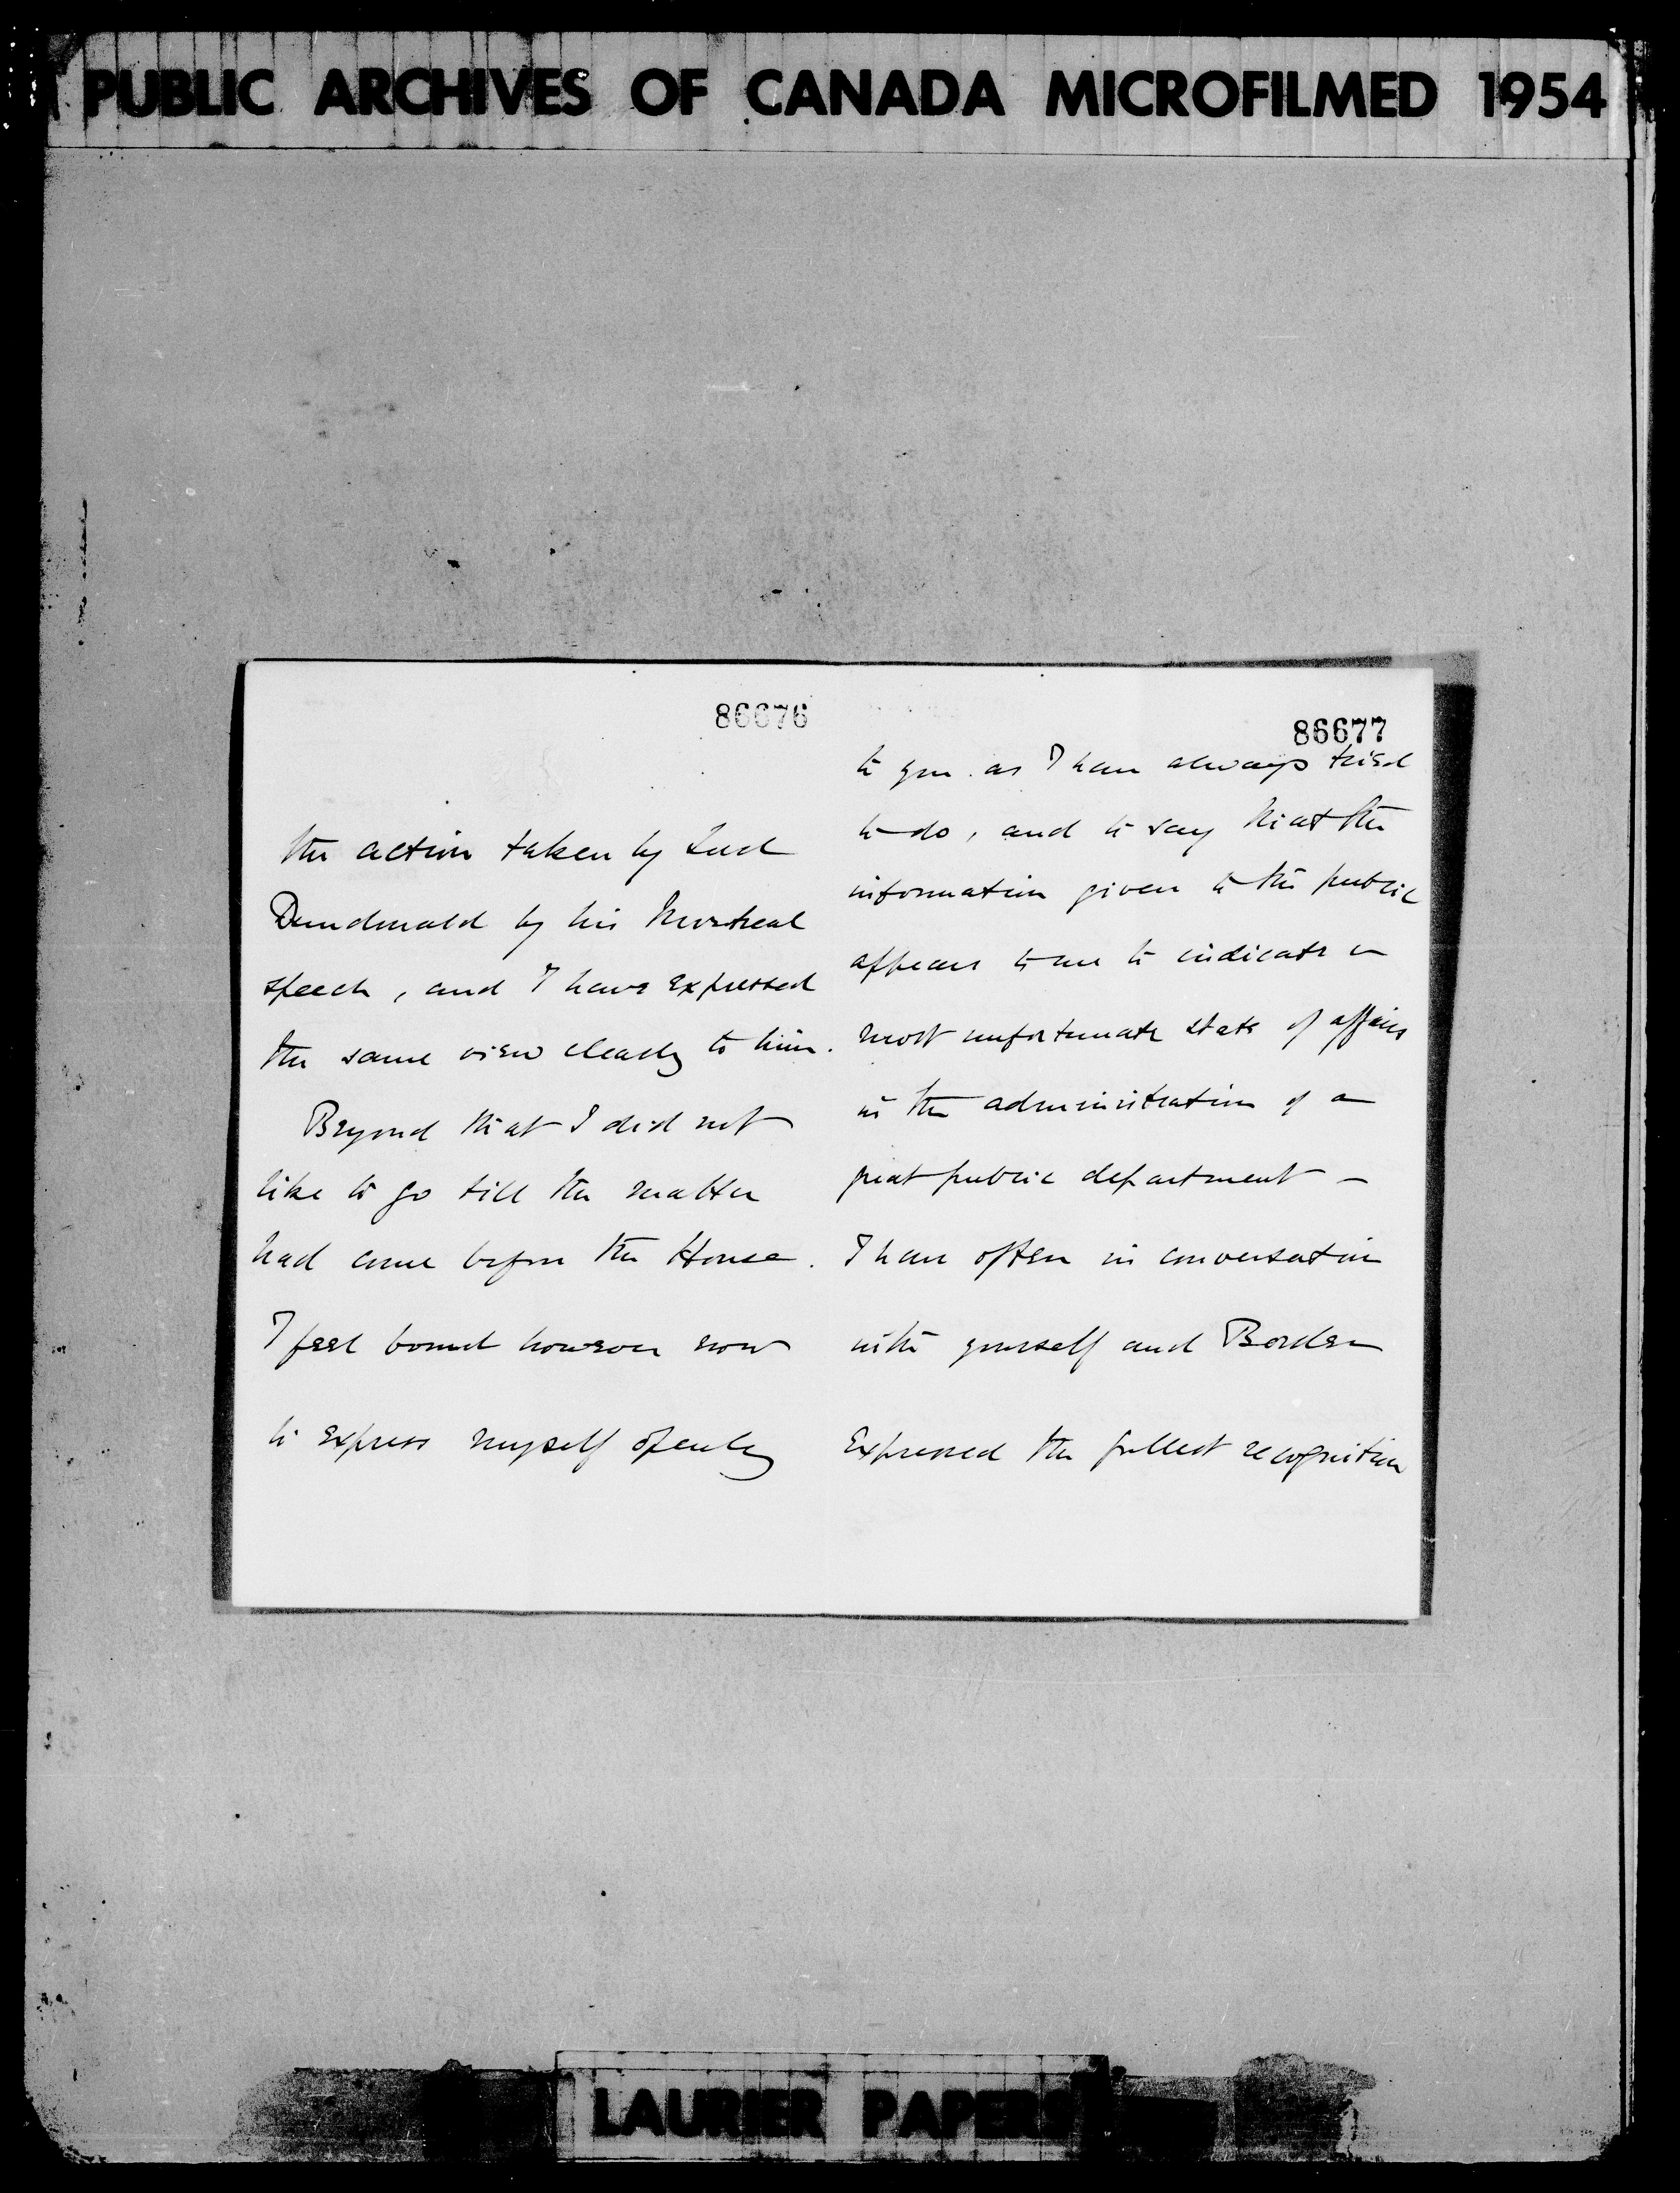 PUBLIC ARCHIVES OF CANADA MICROFILMED 1954
86676
the action taken by Lord
Dundonald by his Montreal
speech, and I have expressed
the same view clearly to him.
Beyond that I did not
like to go till the matter
had come before the House.
I feel bound however now
to express myself openly
86677
to you as I have always tried
to do, and to say that the
information given to the public
appears to me to indicate a
most unfortunate state of affairs
in the administration of a
great public department –
I have often in conversation
with yourself and Borden
expressed the fullest recognition
LAURIER PAPERS